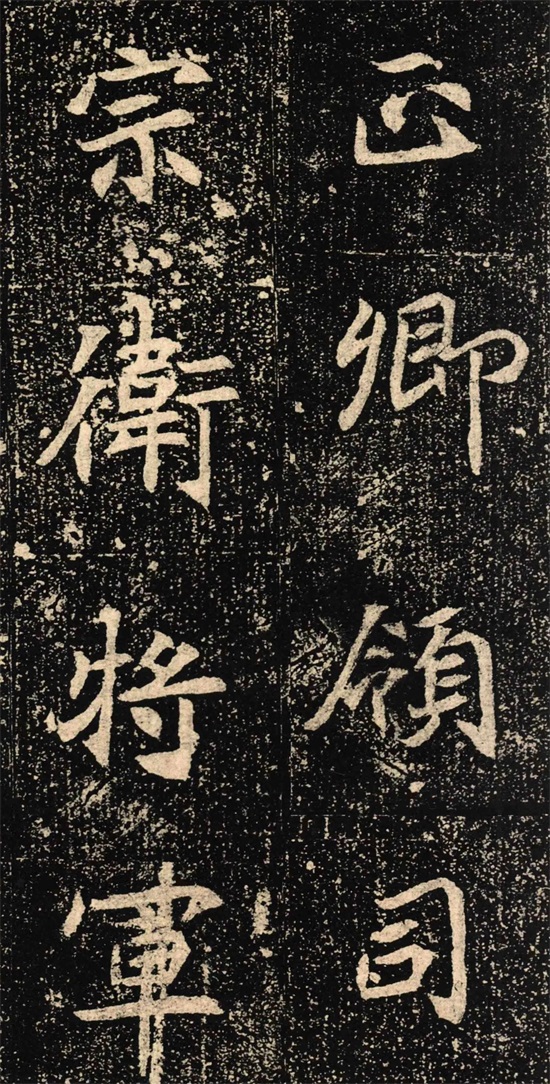 正卿領司
宗衛將軍